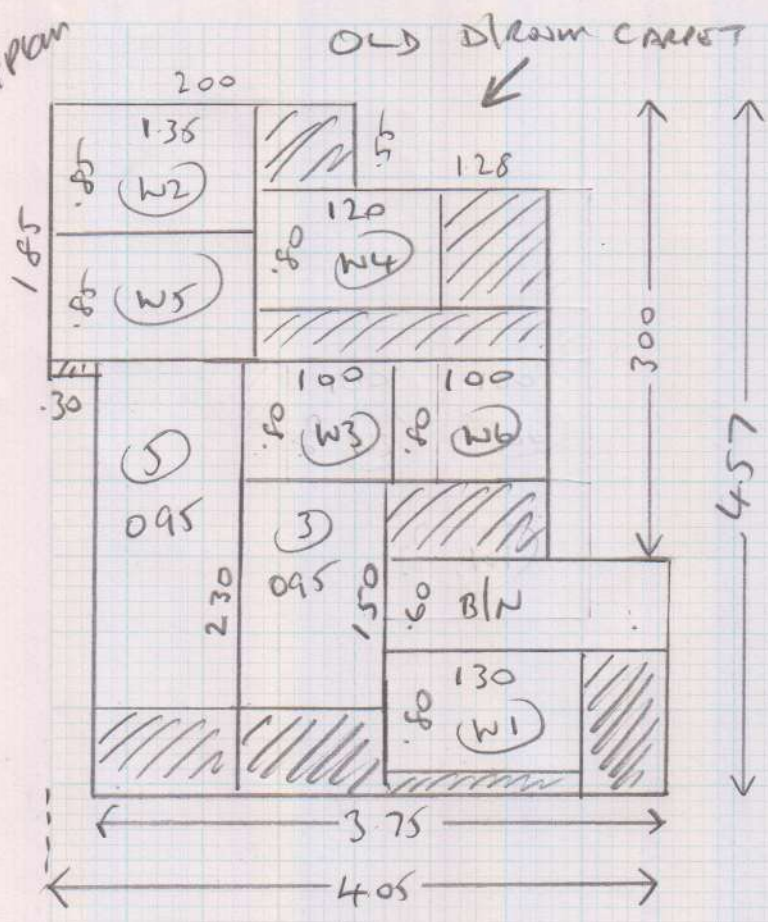 plan
OLD D/ROOM CARPET
200
1.36
.85
W2
.55
128
185
120
.80
W4
.85
W5
.30
100
.80
W3
100
.80
W6
300
4.57
5
095
230
3
095
150
.60
B/N
130
.80
W1
3.75
4.05